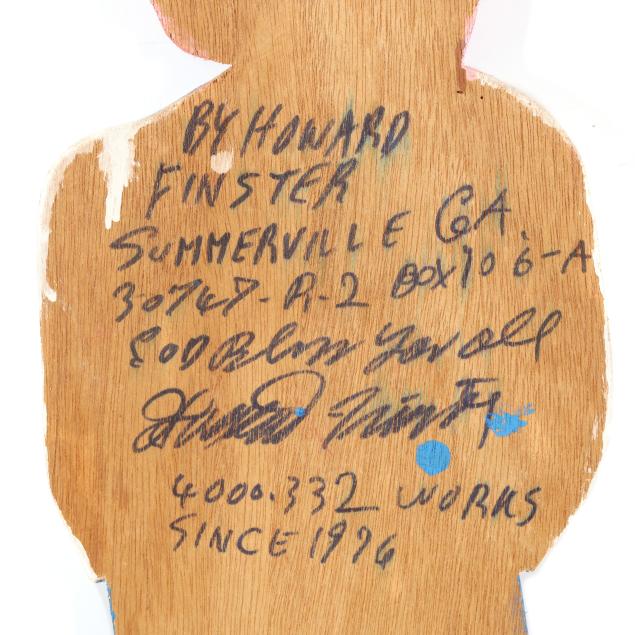 BY HOWARD
FINSTER
SUMMERVILLE GA.
30747-R-2 BOX 106-A
GOD Bless You all
Howard Finster
4000.332 WORKS
SINCE 1976